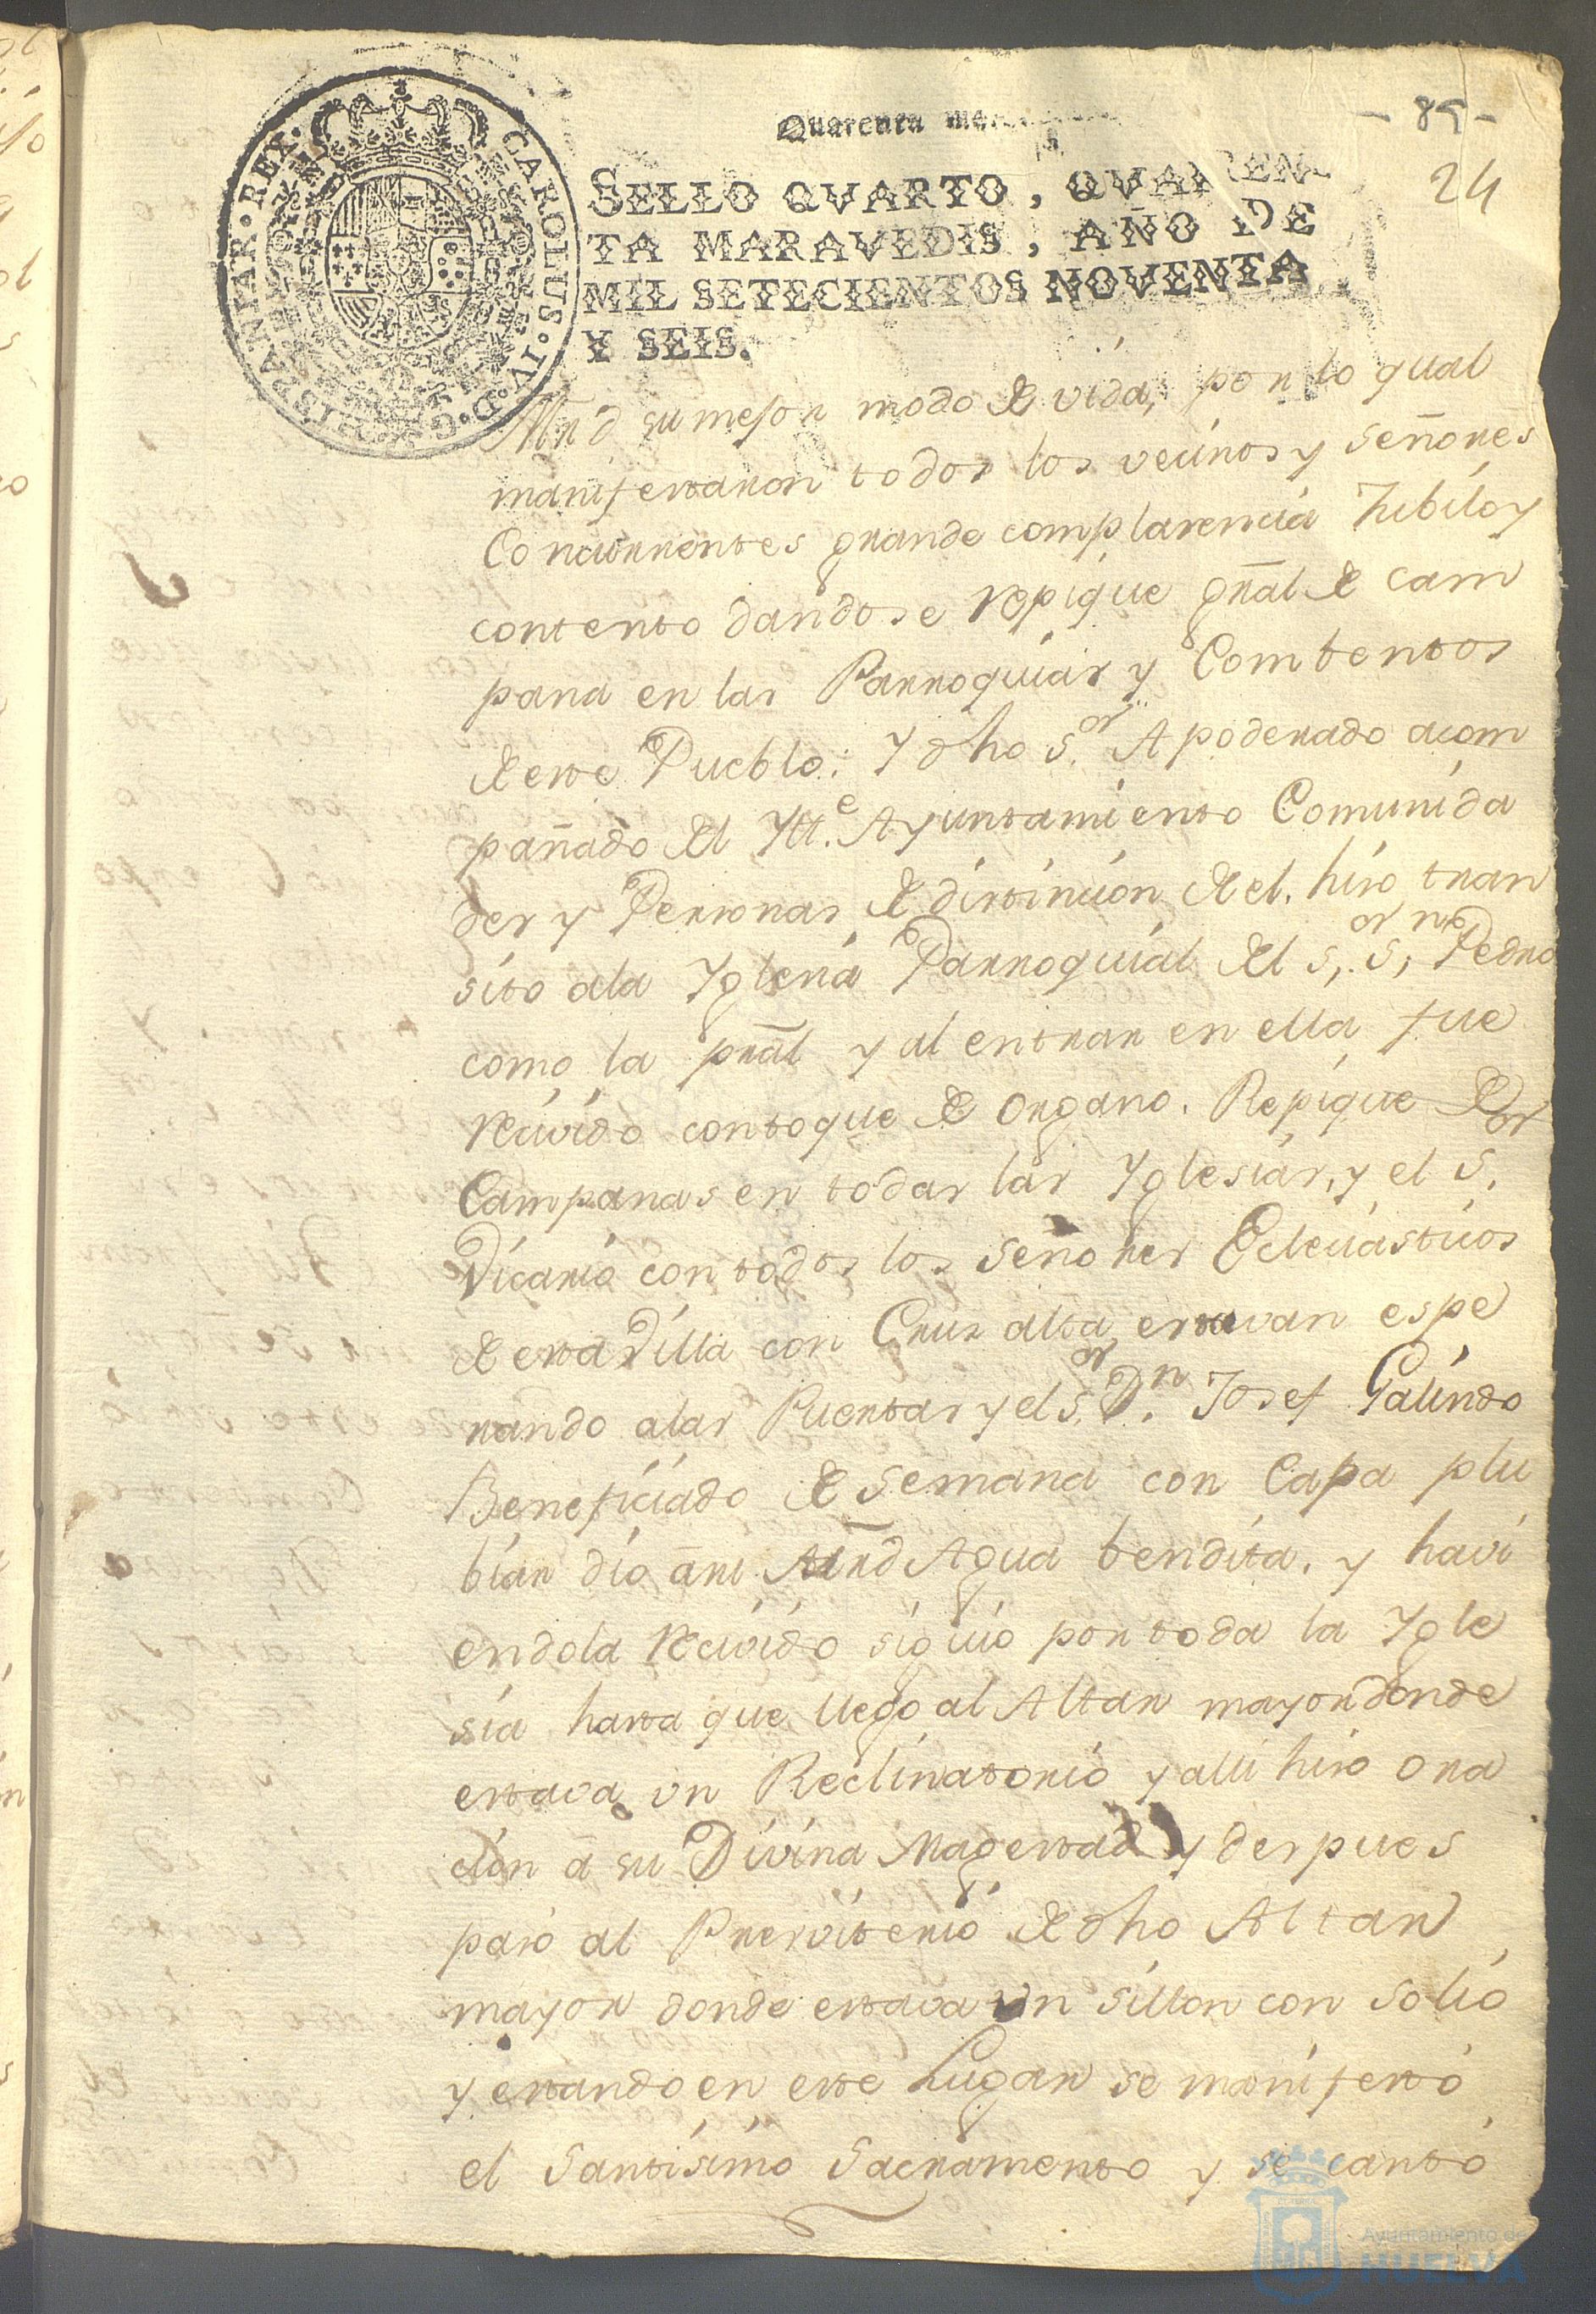 Quarenta mar
- 85 -
24
CAROLUS · IV · D · G · HISPANIAR · REX ·
SELLO QVARTO, QVAREN-
TA MARAVEDIS, AÑO DE
MIL SETECIENTOS NOVENTA
Y SEIS.
su mejor modo de vida, por lo qual
manifestaron todos los vecinos y señores
Concurrentes grande complacencia Jubilo y
contento dandose repique gñal de cam
pana en las Parroquias y Combentos
de este Pueblo: Y dho s.or Apoderado acom
pañado del Ytt.e Ayuntamiento Comunida
des y Personas de distincion de el. hiso tran
sito a la Yglesia Parroquial del s.or s.n Pedro
como la pñal y al entrar en ella fue
recivido con toque de organo. Repique de
Campanas en todas las Yglesias, y el S.or
Vicario con todos los señores Eclesiasticos
de esta Villa con Cruz alta estavan espe
rando a las Puertas y el s.or D.n Josef Galindo
Beneficiado de semana con Capa plu
bial dio a Agua bendita. y havi
endola recivido siguio por toda la Ygle
sia hasta que llego al Altar mayor donde
estava un Reclinatorio y alli hiso ora
cion a su Divina Magestad y despues
paso al Presviterio de dho Altar
mayor donde estava un sillon con solio
y estando en este Lugar se manifesto
el Santisimo Sacramento y se canto
Ayuntamiento de
HUELVA